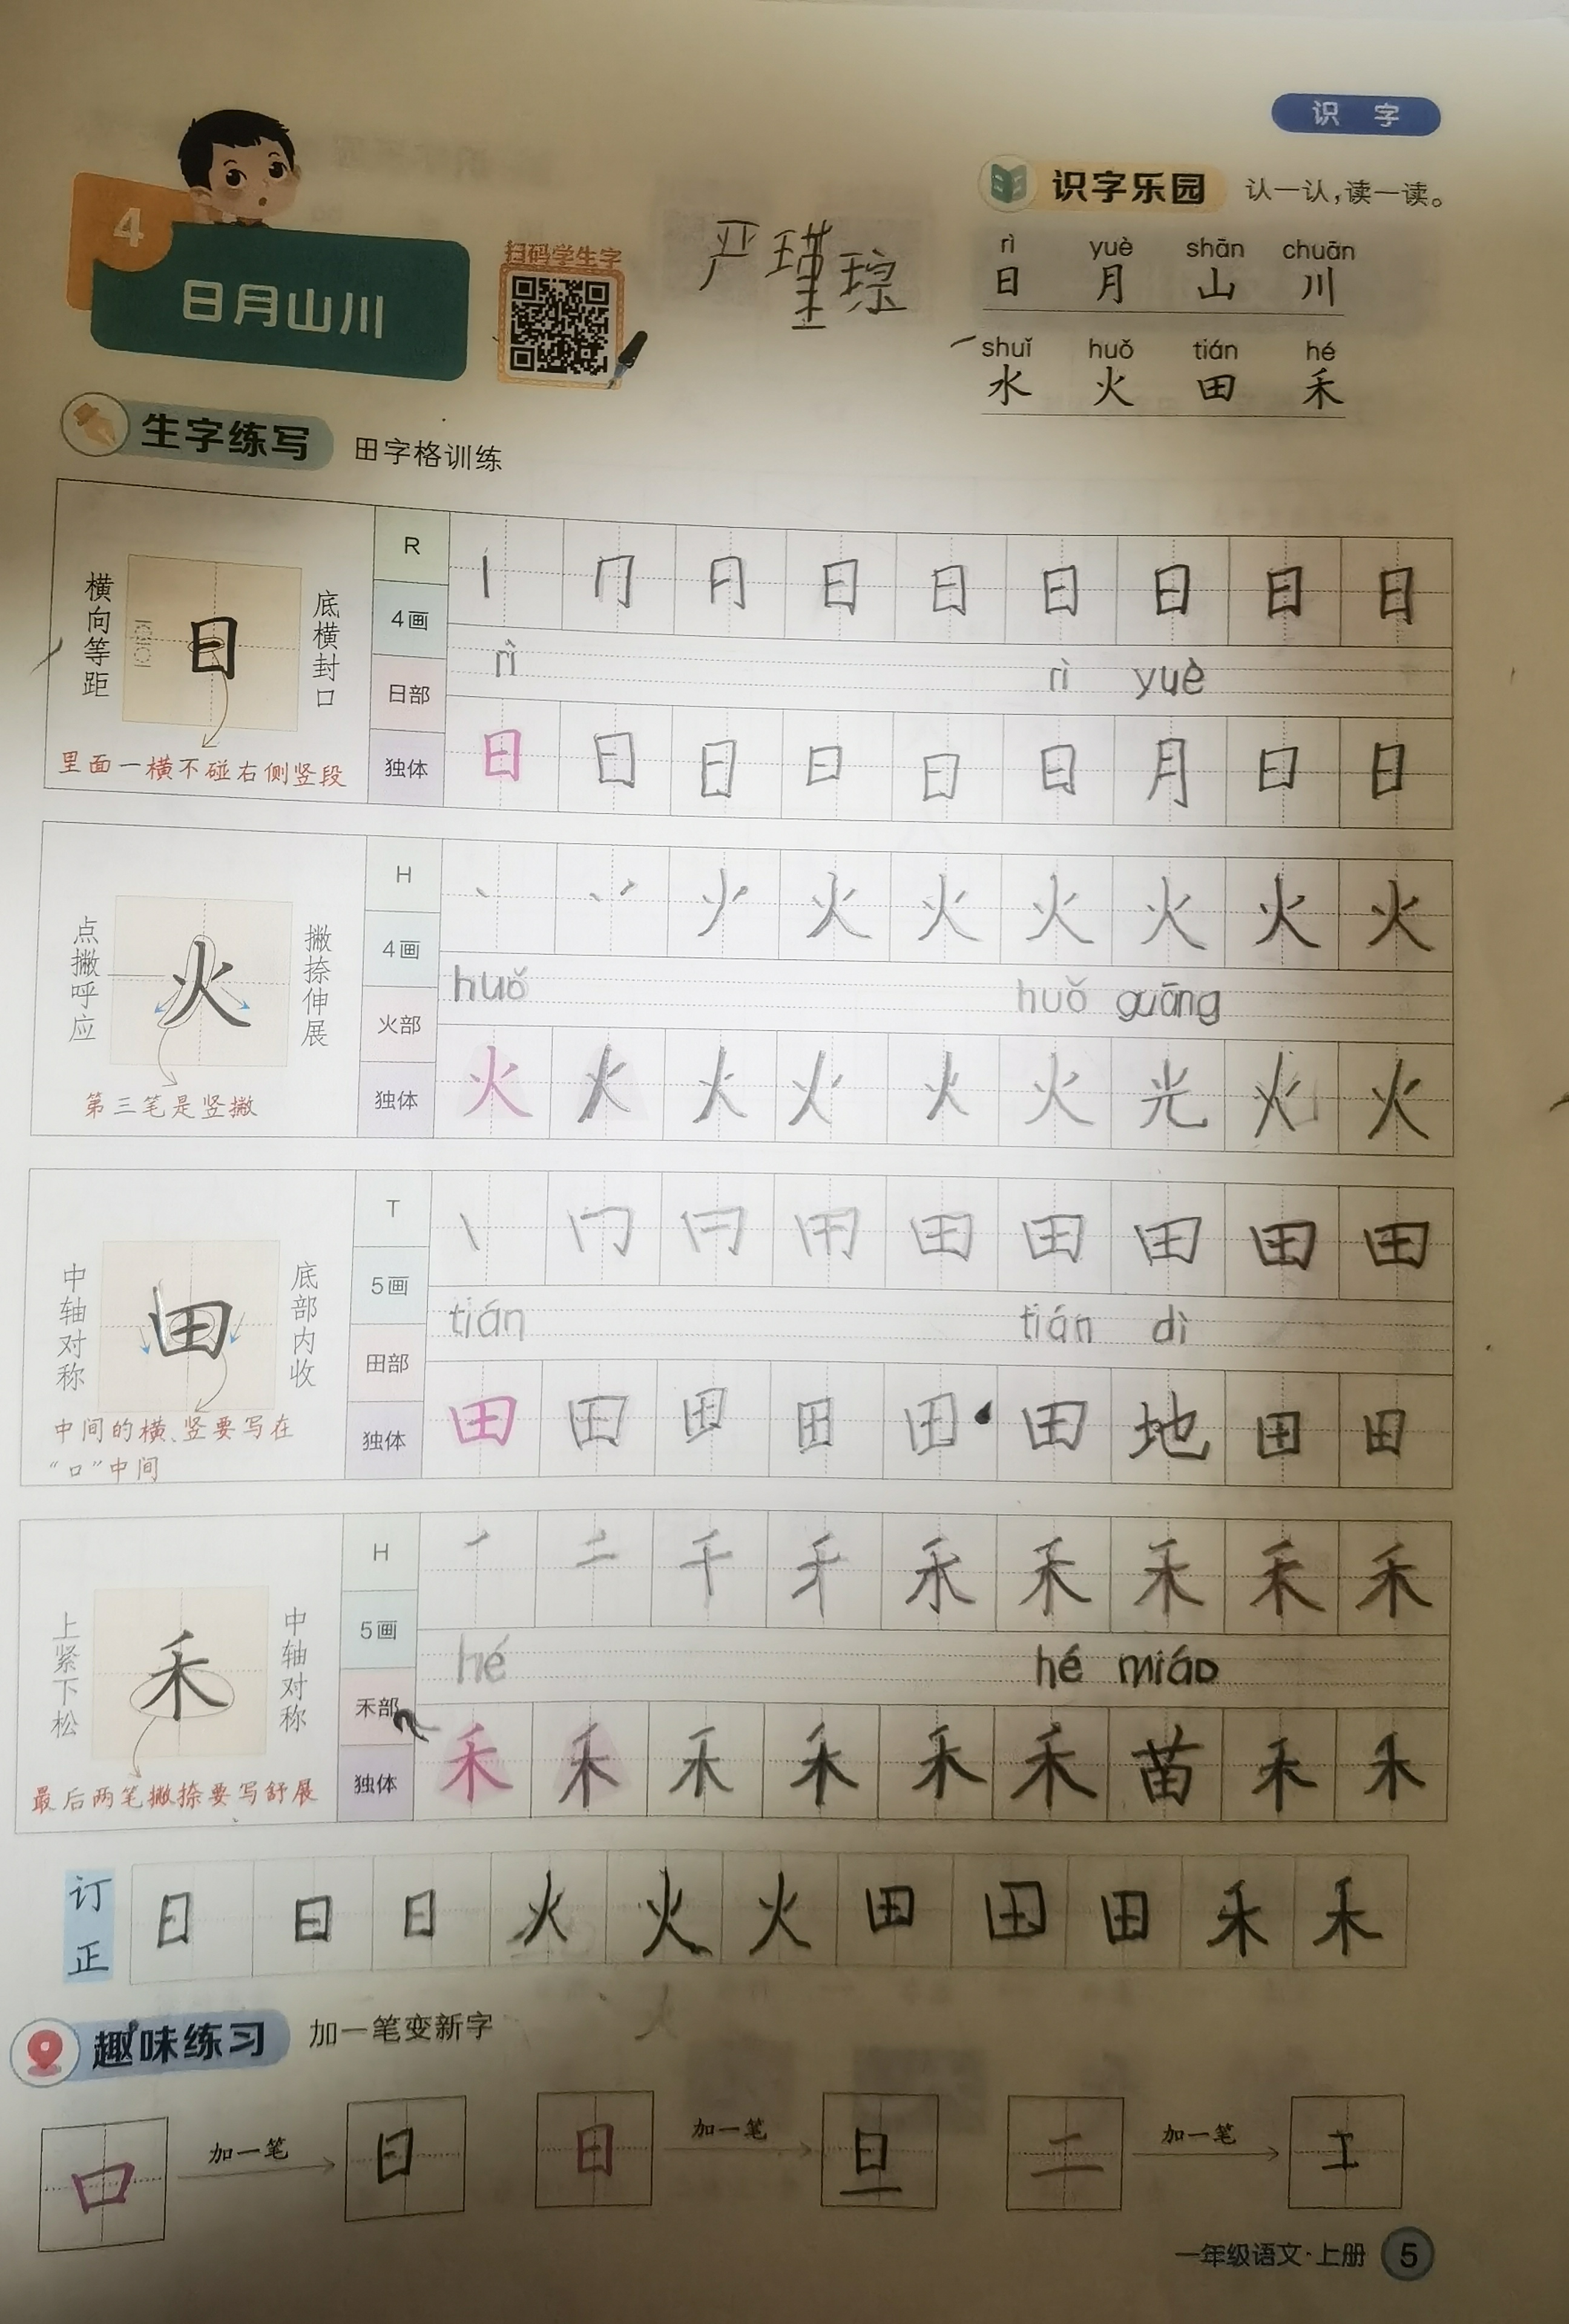 识 字
4
日月山川
扫码学生字
严瑾琮
识字乐园 认一认,读一读。
rì yuè shān chuān
日 月 山 川
shuǐ huǒ tián hé
水 火 田 禾
生字练写 田字格训练
横向等距
日
底横封口
里面一横不碰右侧竖段
R
4画
日部
独体
丨 冂 月 日 日 日 日 日 日
rì rì yuè
日 日 日 日 日 日 月 日 日
点撇呼应
火
撇捺伸展
第三笔是竖撇
H
4画
火部
独体
火 火 火 火 火 火
huǒ huǒ guāng
火 火 火 火 火 火 光 火 火
中轴对称
田
底部内收
中间的横、竖要写在
“口”中间
T
5画
田部
独体
丨 冂 田 田 田 田 田
tián tián dì
田 田 田 田 田 田 地 田 田
上紧下松
禾
中轴对称
最后两笔撇捺要写舒展
H
5画
禾部
独体
一 二 千 禾 禾 禾 禾 禾
hé hé miáo
禾 禾 禾 禾 禾 禾 苗 禾 禾
订正
日 日 日 火 火 火 田 田 田 禾 禾
趣味练习 加一笔变新字
口 加一笔 日 日 加一笔 旦 二 加一笔 工
一年级语文·上册 5